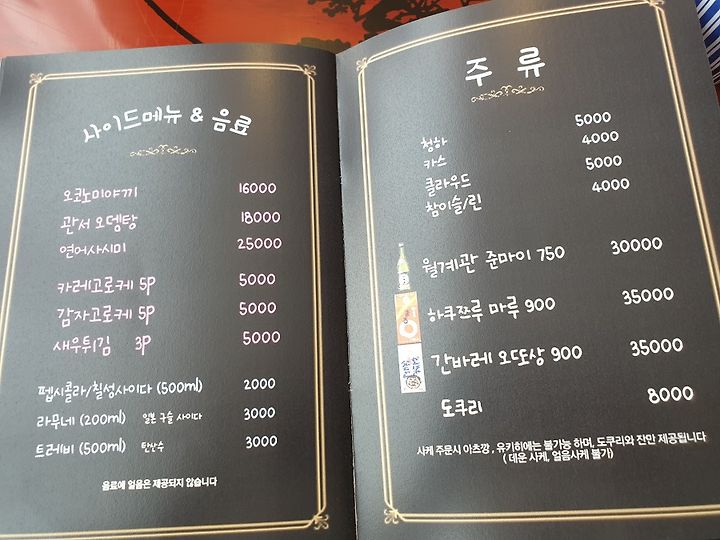 사이드메뉴 & 음료
오코노미야끼 16000
관서 오뎅탕 18000
연어사시미 25000
카레고로케 5P 5000
감자고로케 5P 5000
새우튀김 3P 5000
펩시콜라/칠성사이다 (500ml) 2000
라무네 (200ml) 일본 구슬 사이다 3000
트레비 (500ml) 탄산수 3000
음료에 얼음은 제공되지 않습니다
주 류
청하 5000
카스 4000
클라우드 5000
참이슬/린 4000
월계관 준마이 750 30000
하쿠쯔루 마루 900 35000
간바레 오또상 900 35000
도쿠리 8000
사케 주문시 아츠깡 , 유키히에는 불가능 하며, 도쿠리와 잔만 제공됩니다
( 데운 사케, 얼음사케 불가)